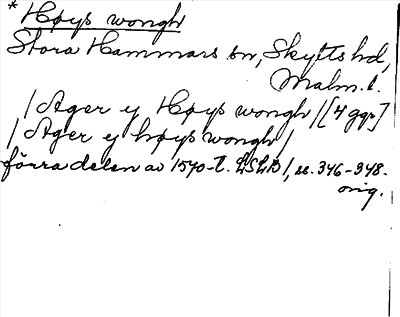 * Høys wongh
Stora Hammars sn, Skytts hd,
Malm. l.
/ Ager ej Høys wongh / [4 ggr]
/ Ager ej høys wongh /
förra delen av 1570-t. LSLB 1, ss. 346-348.
orig.